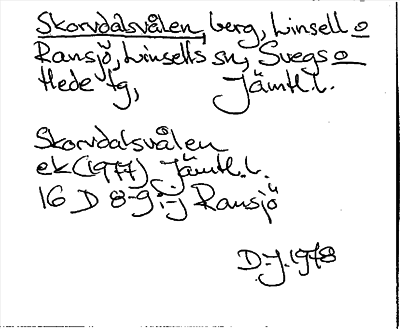 Skorvdalsvålen, berg, Linsell o
Ransjö, Linsells sn, Svegs o
Hede tg, Jämtl.l.
Skorvdalsvålen
ek (1977) Jämtl.l.
16 D 8-9 i-j Ransjö
D-J. 1978